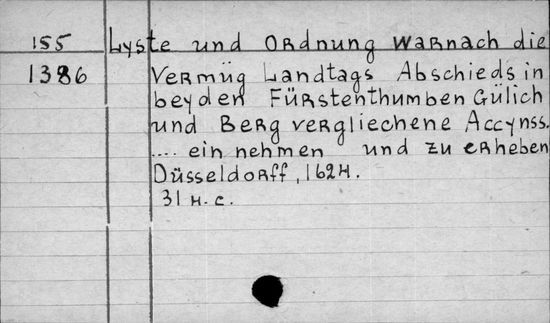 155 Lyste und Ordnung warnach die
1386 Vermüg Landtags Abschieds in
beyden Fürstenthumben Gülich
und Berg vergliechene Accynss.
.... ein nehmen und zu erheben
Düsseldorff, 1624.
31 н. c.